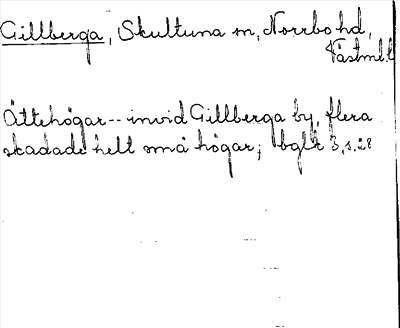 Gillberga, Skultuna sn, Norrbo hd,
Västml.
Ättehögar -- invid Gillberga by, flera
skadade helt små högar; bglk 3, s. 28